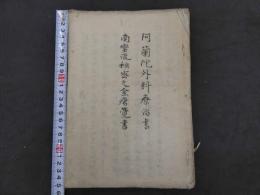 阿蘭陀外科療治書
南蛮流秘密之金瘡覚書